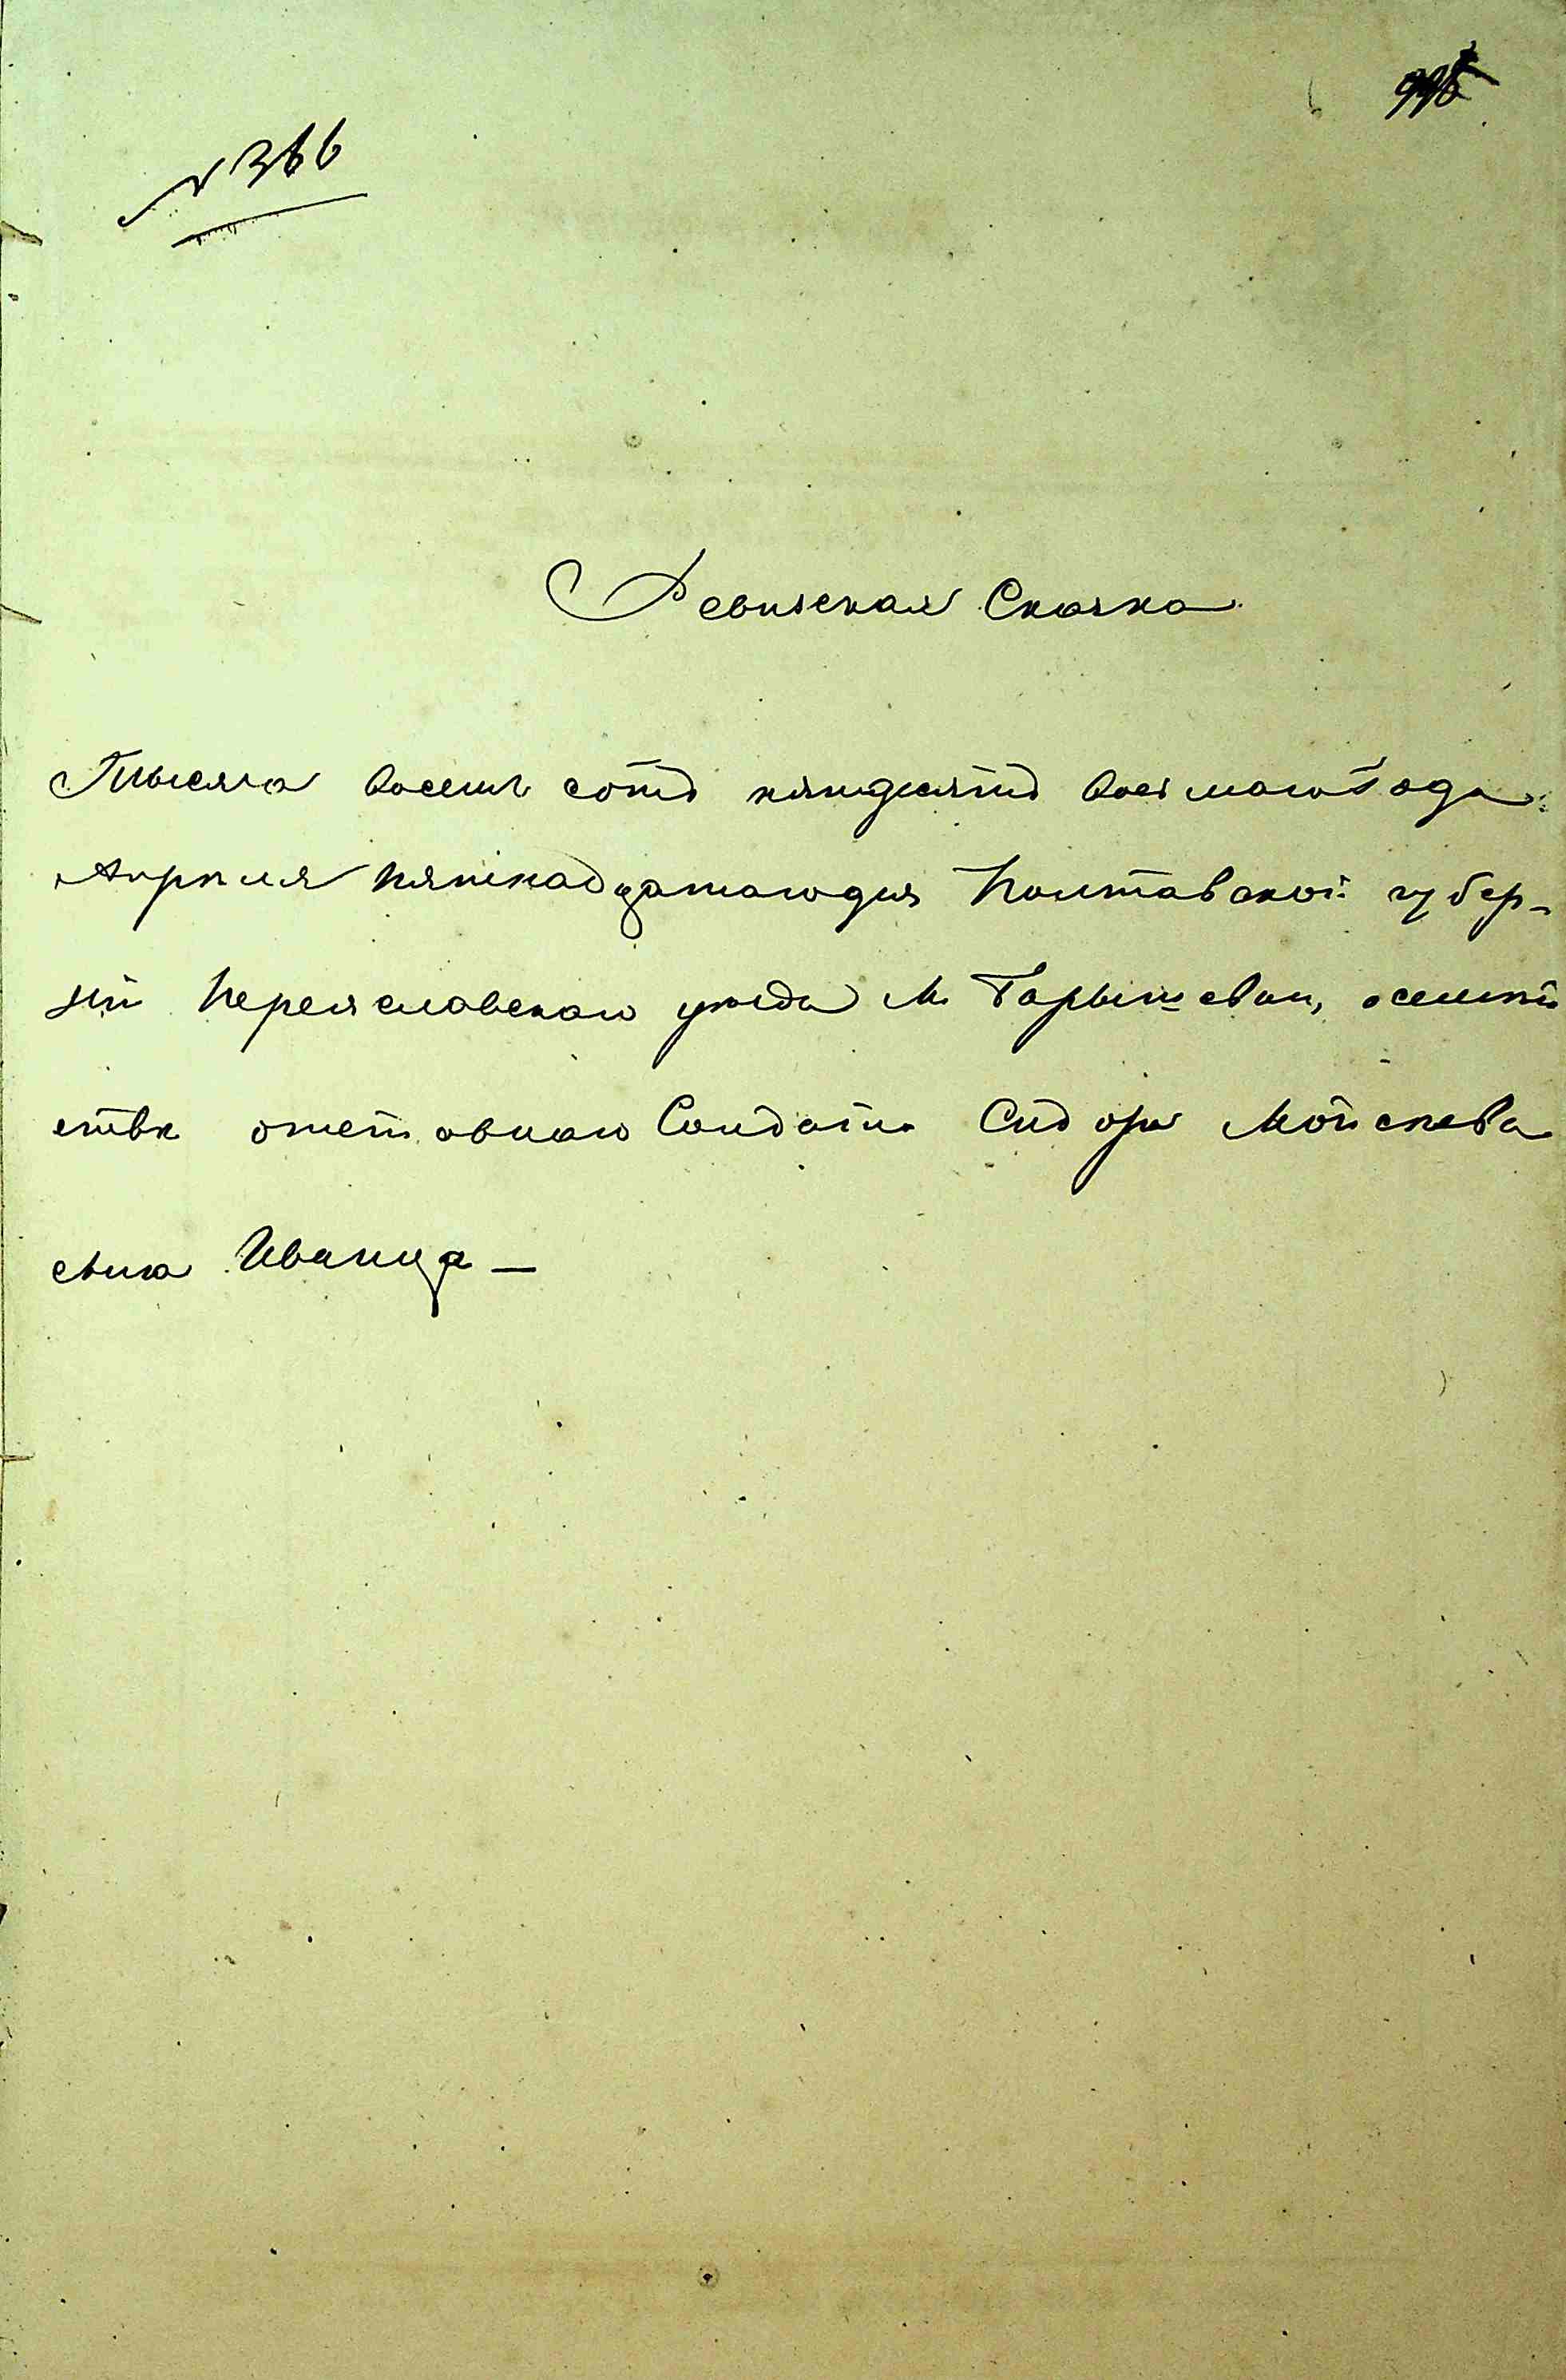 № 366
Ревизская Сказка
Тысяча восемь сотъ пятдесятъ восмаго Года
Апреля пятнадцатаго дня Полтавской губер-
нii Переяславскаго уезда М. Гарышевки, о семей
стве отставнаго Солдата Сидора Мойсеева
сына Иванца —